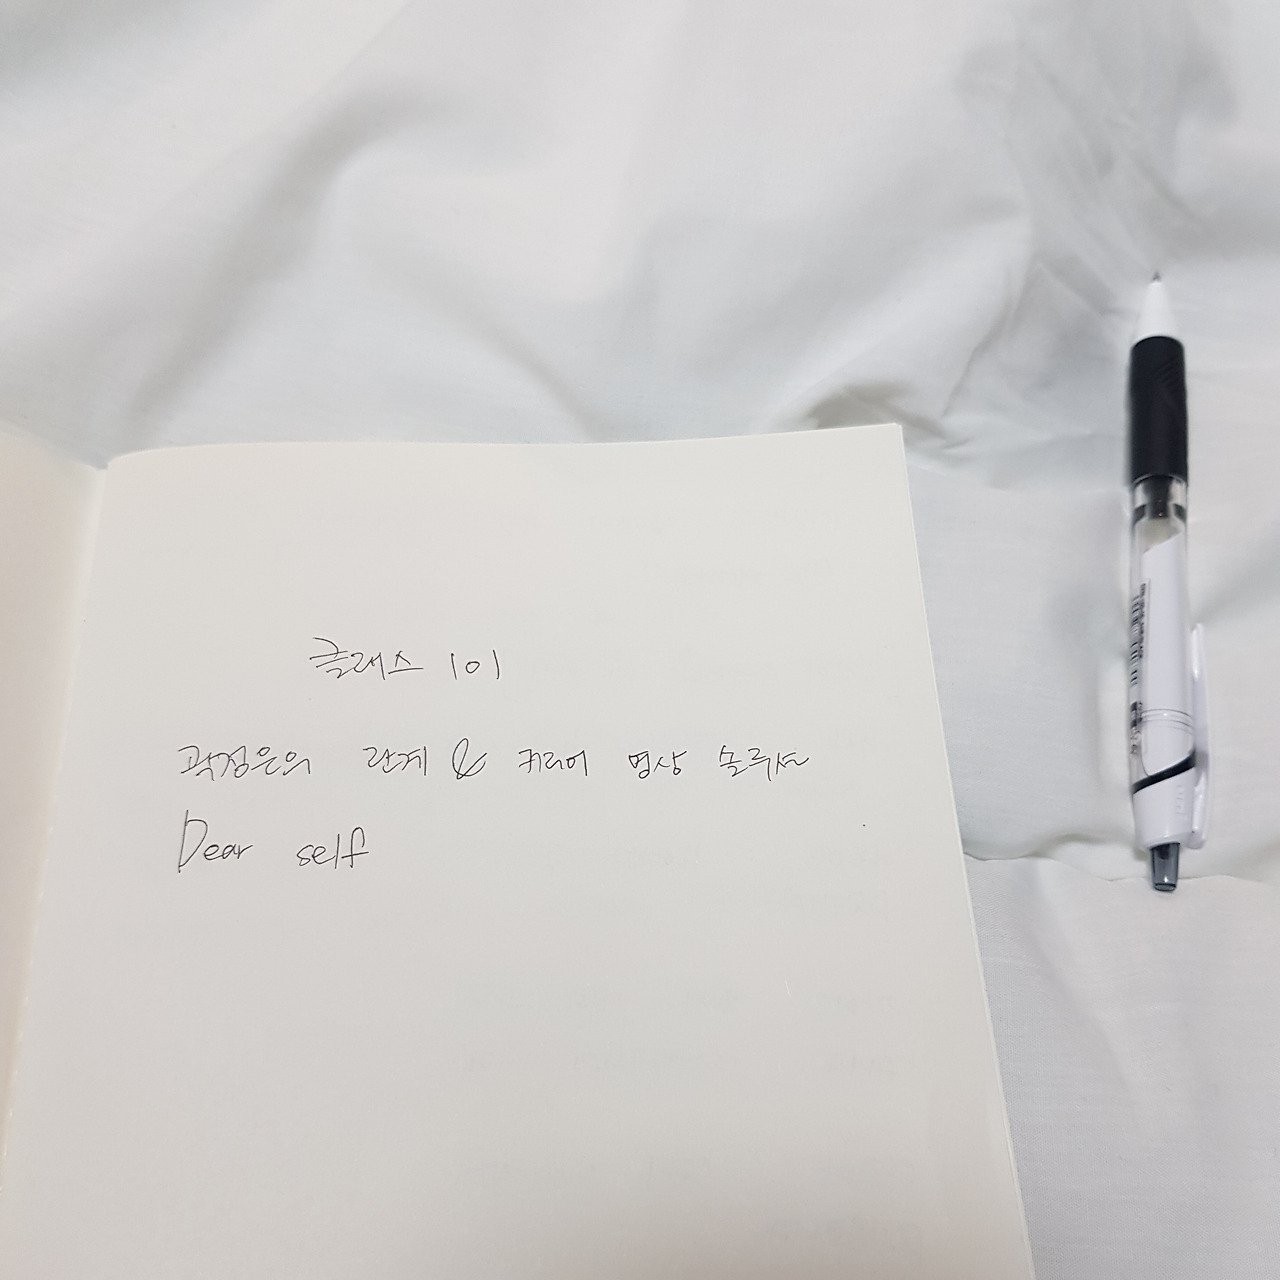 클래스 101
곽정은의 관계 & 커리어 명상 솔루션
Dear self